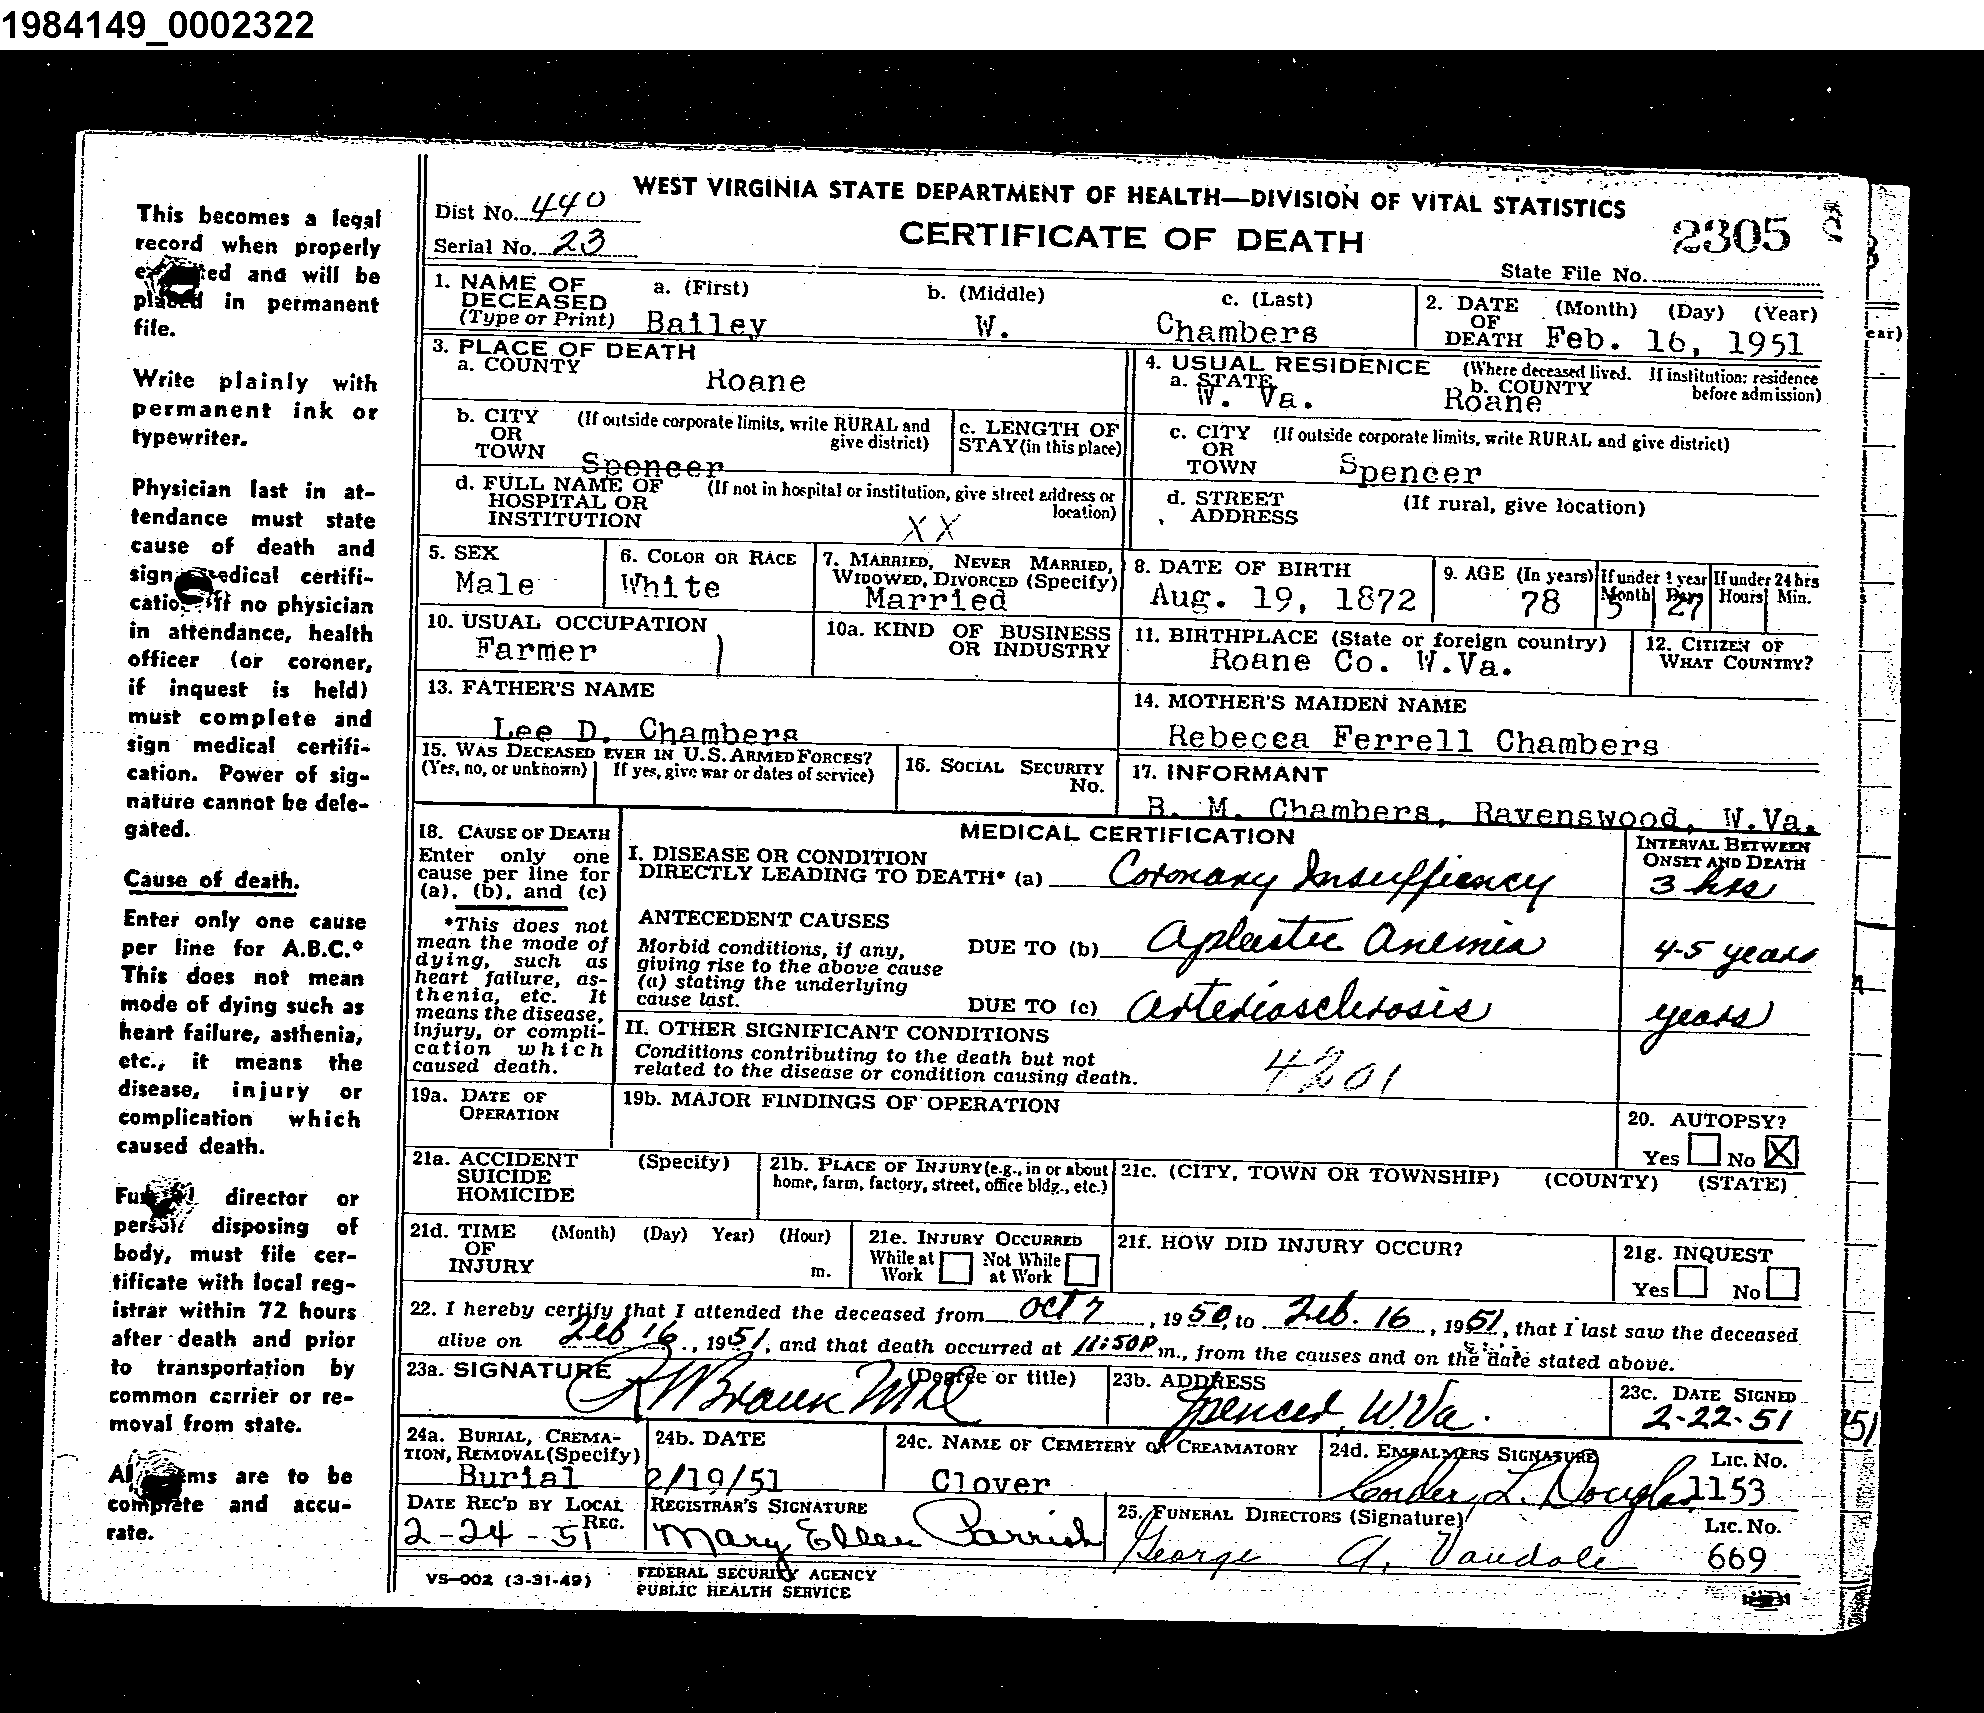 1984149_0002322
This becomes a legal
record when properly
and will be
in permanent
file.
Write plainly with
permanent ink or
typewriter.
Physician last in at-
tendance must state
cause of death and
sign medical certifi-
cation. If no physician
in attendance, health
officer (or coroner,
if inquest is held)
must complete and
sign medical certifi-
cation. Power of sig-
nature cannot be dele-
gated.
Cause of death.
Enter only one cause
per line for A.B.C.*
This does not mean
mode of dying such as
heart failure, asthenia,
etc., it means the
disease, injury or
complication which
caused death.
director or
disposing of
body, must file cer-
tificate with local reg-
istrar within 72 hours
after death and prior
to transportation by
common carrier or re-
moval from state.
are to be
complete and accu-
rate.
WEST VIRGINIA STATE DEPARTMENT OF HEALTH—DIVISION OF VITAL STATISTICS
Dist No. 440
CERTIFICATE OF DEATH 2305
Serial No. 23
State File No.
1. NAME OF DECEASED (Type or Print) a. (First) Bailey b. (Middle) W. c. (Last) Chambers
2. DATE OF DEATH (Month) (Day) (Year) Feb. 16, 1951
3. PLACE OF DEATH
a. COUNTY Roane
4. USUAL RESIDENCE (Where deceased lived. If institution: residence before admission)
a. STATE W. Va. b. COUNTY Roane
b. CITY OR TOWN (If outside corporate limits, write RURAL and give district) Spencer
c. LENGTH OF STAY (in this place)
c. CITY OR TOWN (If outside corporate limits, write RURAL and give district) Spencer
d. FULL NAME OF HOSPITAL OR INSTITUTION (If not in hospital or institution, give street address or location) XX
d. STREET ADDRESS (If rural, give location)
5. SEX Male
6. COLOR OR RACE White
7. MARRIED, NEVER MARRIED, WIDOWED, DIVORCED (Specify) Married
8. DATE OF BIRTH Aug. 19, 1872
9. AGE (In years) 78 If under 1 year Month 5 Days 27 If under 24 hrs Hours Min.
10. USUAL OCCUPATION Farmer
10a. KIND OF BUSINESS OR INDUSTRY
11. BIRTHPLACE (State or foreign country) Roane Co. W.Va.
12. CITIZEN OF WHAT COUNTRY?
13. FATHER'S NAME Lee D. Chambers
14. MOTHER'S MAIDEN NAME Rebecca Ferrell Chambers
15. WAS DECEASED EVER IN U.S. ARMED FORCES? (Yes, no, or unknown) If yes, give war or dates of service)
16. SOCIAL SECURITY No.
17. INFORMANT B. M. Chambers, Ravenswood, W.Va.
18. CAUSE OF DEATH
Enter only one
cause per line for
(a), (b), and (c)
*This does not
mean the mode of
dying, such as
heart failure, as-
thenia, etc. It
means the disease,
injury, or compli-
cation which
caused death.
MEDICAL CERTIFICATION
INTERVAL BETWEEN ONSET AND DEATH
I. DISEASE OR CONDITION
DIRECTLY LEADING TO DEATH* (a) Coronary Insufficiency 3 hrs
ANTECEDENT CAUSES
Morbid conditions, if any,
giving rise to the above cause
(a) stating the underlying
cause last.
DUE TO (b) Aplastic Anemia 4-5 years
DUE TO (c) Arteriosclerosis years
II. OTHER SIGNIFICANT CONDITIONS
Conditions contributing to the death but not
related to the disease or condition causing death.
4201
19a. DATE OF OPERATION
19b. MAJOR FINDINGS OF OPERATION
20. AUTOPSY?
Yes No X
21a. ACCIDENT SUICIDE HOMICIDE (Specify)
21b. PLACE OF INJURY (e.g., in or about home, farm, factory, street, office bldg., etc.)
21c. (CITY, TOWN OR TOWNSHIP) (COUNTY) (STATE)
21d. TIME OF INJURY (Month) (Day) Year) (Hour) m.
21e. INJURY OCCURRED While at Work Not While at Work
21f. HOW DID INJURY OCCUR?
21g. INQUEST Yes No
22. I hereby certify that I attended the deceased from Oct 7, 1950, to Feb. 16, 1951, that I last saw the deceased
alive on Feb 16, 1951, and that death occurred at 11:50P m., from the causes and on the date stated above.
23a. SIGNATURE (Degree or title)
23b. ADDRESS Spencer, W.Va.
23c. DATE SIGNED 2-22-51
24a. BURIAL, CREMATION, REMOVAL (Specify) Burial
24b. DATE 2/19/51
24c. NAME OF CEMETERY OR CREAMATORY Clover
24d. EMBALMERS SIGNATURE L. Douglas Lic. No. 1153
DATE REC'D BY LOCAL REG. 2-24-51
REGISTRAR'S SIGNATURE Mary Ellen Parrish
25. FUNERAL DIRECTORS (Signature) George A. Vandale Lic. No. 669
VS-002 (3-31-49)
FEDERAL SECURITY AGENCY
PUBLIC HEALTH SERVICE